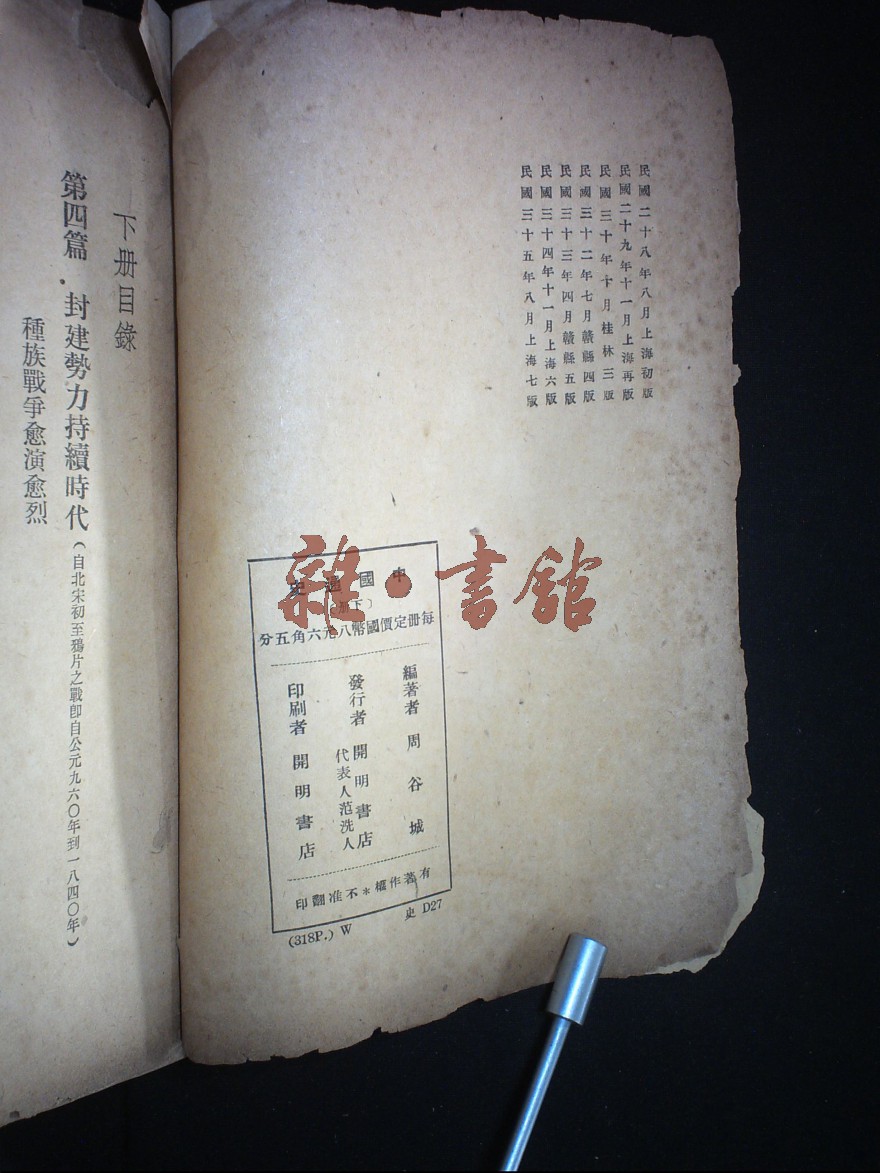 民國二十八年八月上海初版
民國二十九年十一月上海再版
民國三十年十月桂林三版
民國三十二年七月贛縣四版
民國三十三年四月贛縣五版
民國三十四年十一月上海六版
民國三十五年八月上海七版
中國通史
〔下册〕
每册定價國幣八元六角五分
編著者 周谷城
發行者 開明書店
代表人范洗人
印刷者 開明書店
有著作權＊不准翻印
(318P.) W
史 D27
雜·書館
下册目錄
第四篇 封建勢力持續時代（自北宋初至鴉片之戰卽自公元九六〇年到一八四〇年）
種族戰爭愈演愈烈